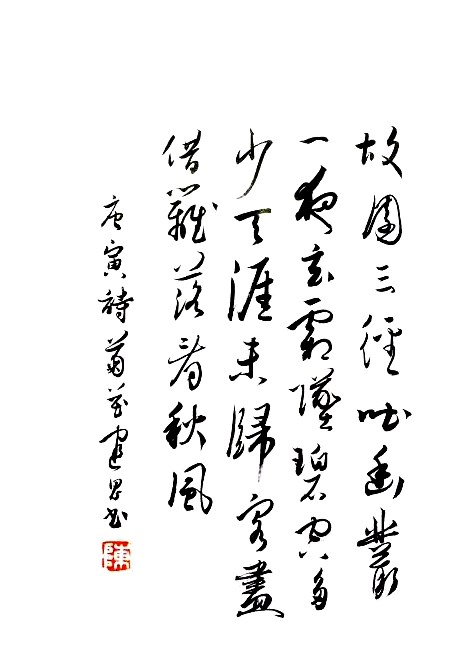 故園三徑吐幽叢
一夜玄霜墜碧空多
少天涯未歸客盡
借籬落看秋風
唐寅詩菊花建書
陳